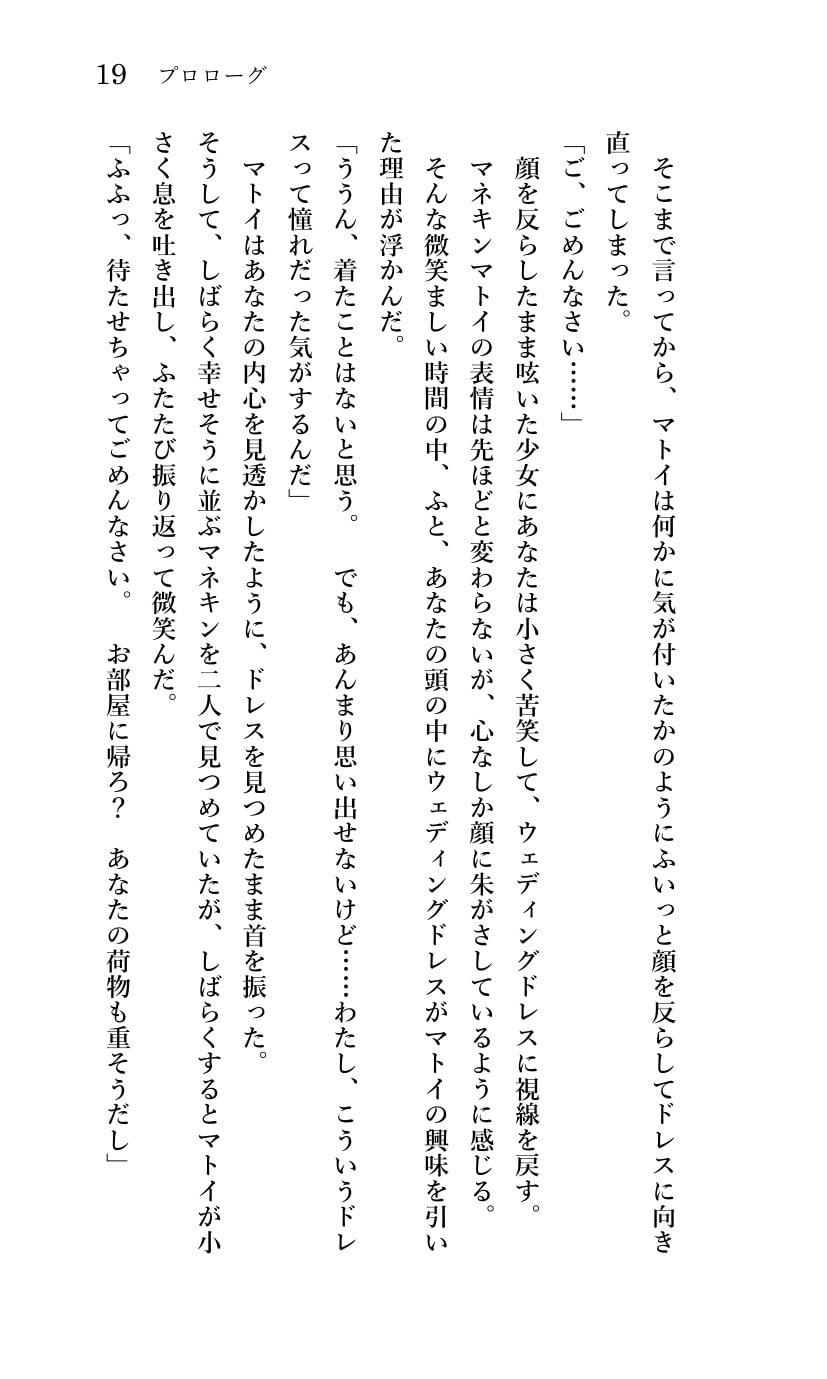 19 プロローグ
　そこまで言ってから、マトイは何かに気が付いたかのようにふいっと顔を反らしてドレスに向き
直ってしまった。
「ご、ごめんなさい……」
　顔を反らしたまま呟いた少女にあなたは小さく苦笑して、ウェディングドレスに視線を戻す。
　マネキンマトイの表情は先ほどと変わらないが、心なしか顔に朱がさしているように感じる。
　そんな微笑ましい時間の中、ふと、あなたの頭の中にウェディングドレスがマトイの興味を引い
た理由が浮かんだ。
「ううん、着たことはないと思う。　でも、あんまり思い出せないけど……わたし、こういうドレ
スって憧れだった気がするんだ」
　マトイはあなたの内心を見透かしたように、ドレスを見つめたまま首を振った。
そうして、しばらく幸せそうに並ぶマネキンを二人で見つめていたが、しばらくするとマトイが小
さく息を吐き出し、ふたたび振り返って微笑んだ。
「ふふっ、待たせちゃってごめんなさい。　お部屋に帰ろ？　あなたの荷物も重そうだし」